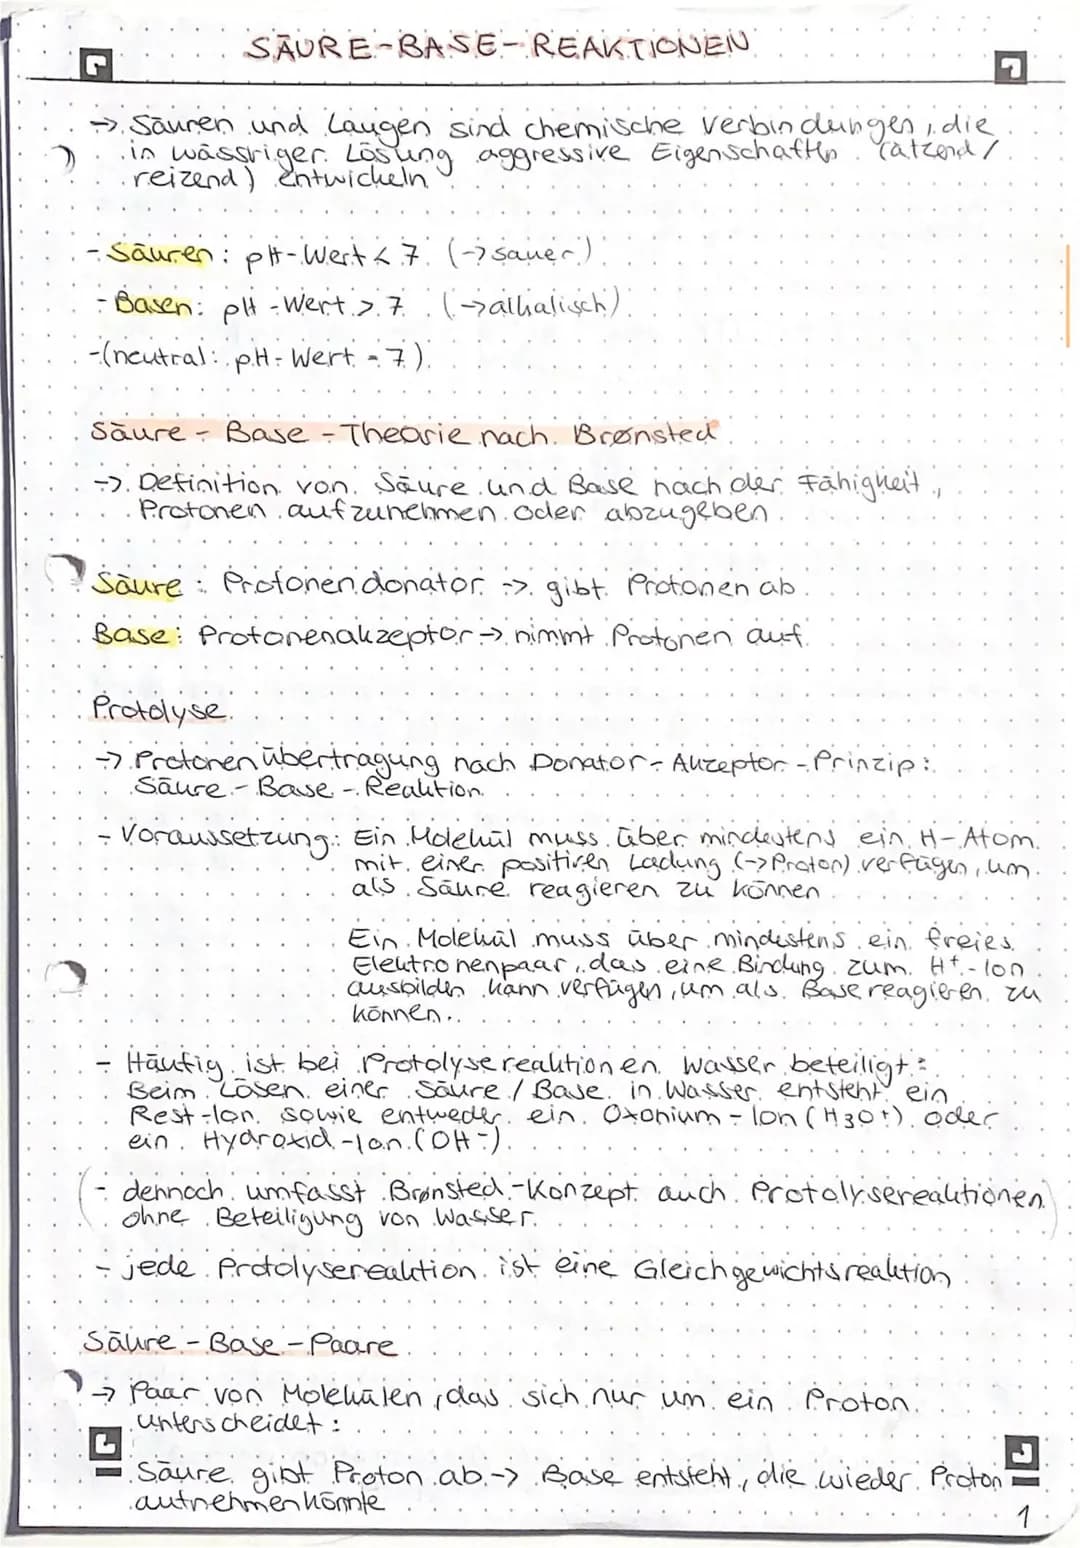 SÄURE-BASE-REAKTIONEN
→ Säuren und Laugen sind chemische Verbindungen, die
in wässriger Lösung aggressive Eigenschaften (ätzend/
reizend) entwickeln
- Säuren: pH-Wert < 7 (→ sauer)
- Basen: pH-Wert > 7 (→ alkalisch)
- (neutral: pH-Wert = 7)
Säure-Base-Theorie nach Brønsted
→ Definition von Säure und Base nach der Fähigkeit,
Protonen aufzunehmen oder abzugeben
Säure: Protonendonator → gibt Protonen ab
Base: Protonenakzeptor → nimmt Protonen auf
Protolyse
→ Protonenübertragung nach Donator-Akzeptor-Prinzip:
Säure-Base-Reaktion
- Voraussetzung: Ein Molekül muss über mindestens ein H-Atom
mit einer positiven Ladung (→ Proton) verfügen, um
als Säure reagieren zu können
Ein Molekül muss über mindestens ein freies
Elektronenpaar, das eine Bindung zum H+-Ion
ausbilden kann verfügen, um als Base reagieren zu
können.
- Häufig ist bei Protolysereaktionen Wasser beteiligt:
Beim Lösen einer Säure / Base in Wasser entsteht ein
Rest-Ion sowie entweder ein Oxonium-Ion (H3O+) oder
ein Hydroxid-Ion (OH-)
(- dennoch umfasst Brønsted-Konzept auch Protolysereaktionen
ohne Beteiligung von Wasser)
- jede Protolysereaktion ist eine Gleichgewichtsreaktion
Säure-Base-Paare
→ Paar von Molekülen, das sich nur um ein Proton
unterscheidet:
Säure gibt Proton ab → Base entsteht, die wieder Proton
aufnehmen könnte
1